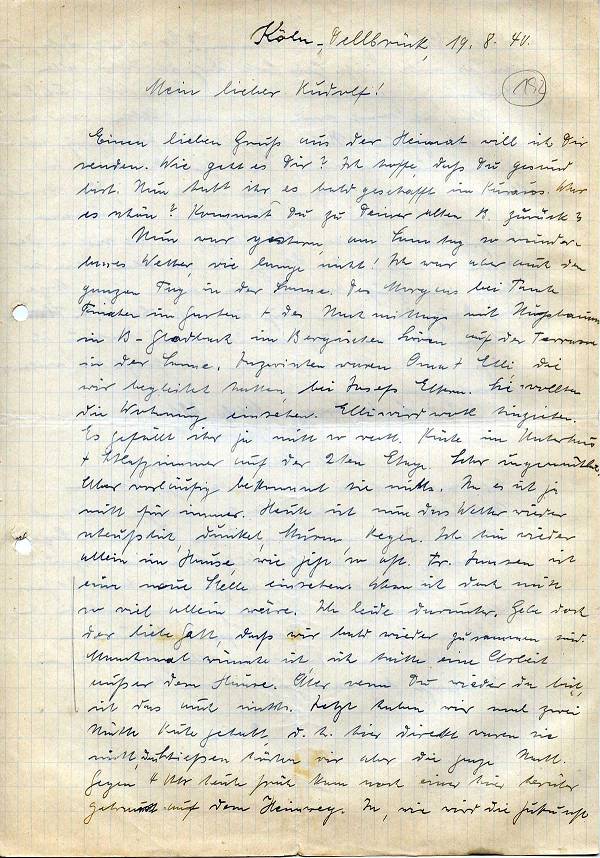 Köln-Dellbrück, 19. 8. 40.
192
Mein lieber Rudolf!
Einen lieben Gruß aus der Heimat will ich Dir
senden. Wie geht es Dir? Ich hoffe, daß Du gesund
bist. Nun habt ihr es bald geschafft im Kursus. War
es schön? Kommst Du zu Deiner alten B. zurück?
Nun war gestern, am Sonntag so wunder-
bares Wetter, wie lange nicht! Ich war aber auch den
ganzen Tag in der Sonne. Des Morgens bei Tante
im Garten + des Nachmittags mit
in B-Gladbach im Bergischen Löwen auf der Terrasse
in der Sonne. Inzwischen waren Oma + Elli, die
wir begleitet hatten, bei Josefs Eltern. Sie wollten
die Wohnung einsehen. Elli wird wohl einziehen.
Es gefällt ihr ja nicht so recht. Küche im Unterhaus
+ Schlafzimmer auf der 2ten Etage. Sehr ungemütlich.
Aber vorläufig bekommt sie nichts. Na es ist ja
nicht für immer. Heute ist nun das Wetter wieder
scheußlich, dunkel, Sturm, Regen. Ich bin wieder
allein im Hause, wie jetzt so oft. Fr. Jansen ist
eine neue Stelle einsehen. Wenn ich doch nicht
so viel allein wäre. Ich leide darunter. Gebe doch
der liebe Gott, daß wir bald wieder zusammen sind.
Manchmal wünschte ich, ich hätte eine Arbeit
außer dem Hause. Aber wenn Du wieder da bist,
ist das auch nichts. Jetzt haben wir mal zwei
Nächte Ruhe gehabt d. h. hier direkt waren sie
nicht, das Schießen hörten wir aber die ganze Nacht.
Gegen 4 Uhr heute früh kam noch einer hier herüber
auf dem Heimweg. Ja, wie wird die Zukunft